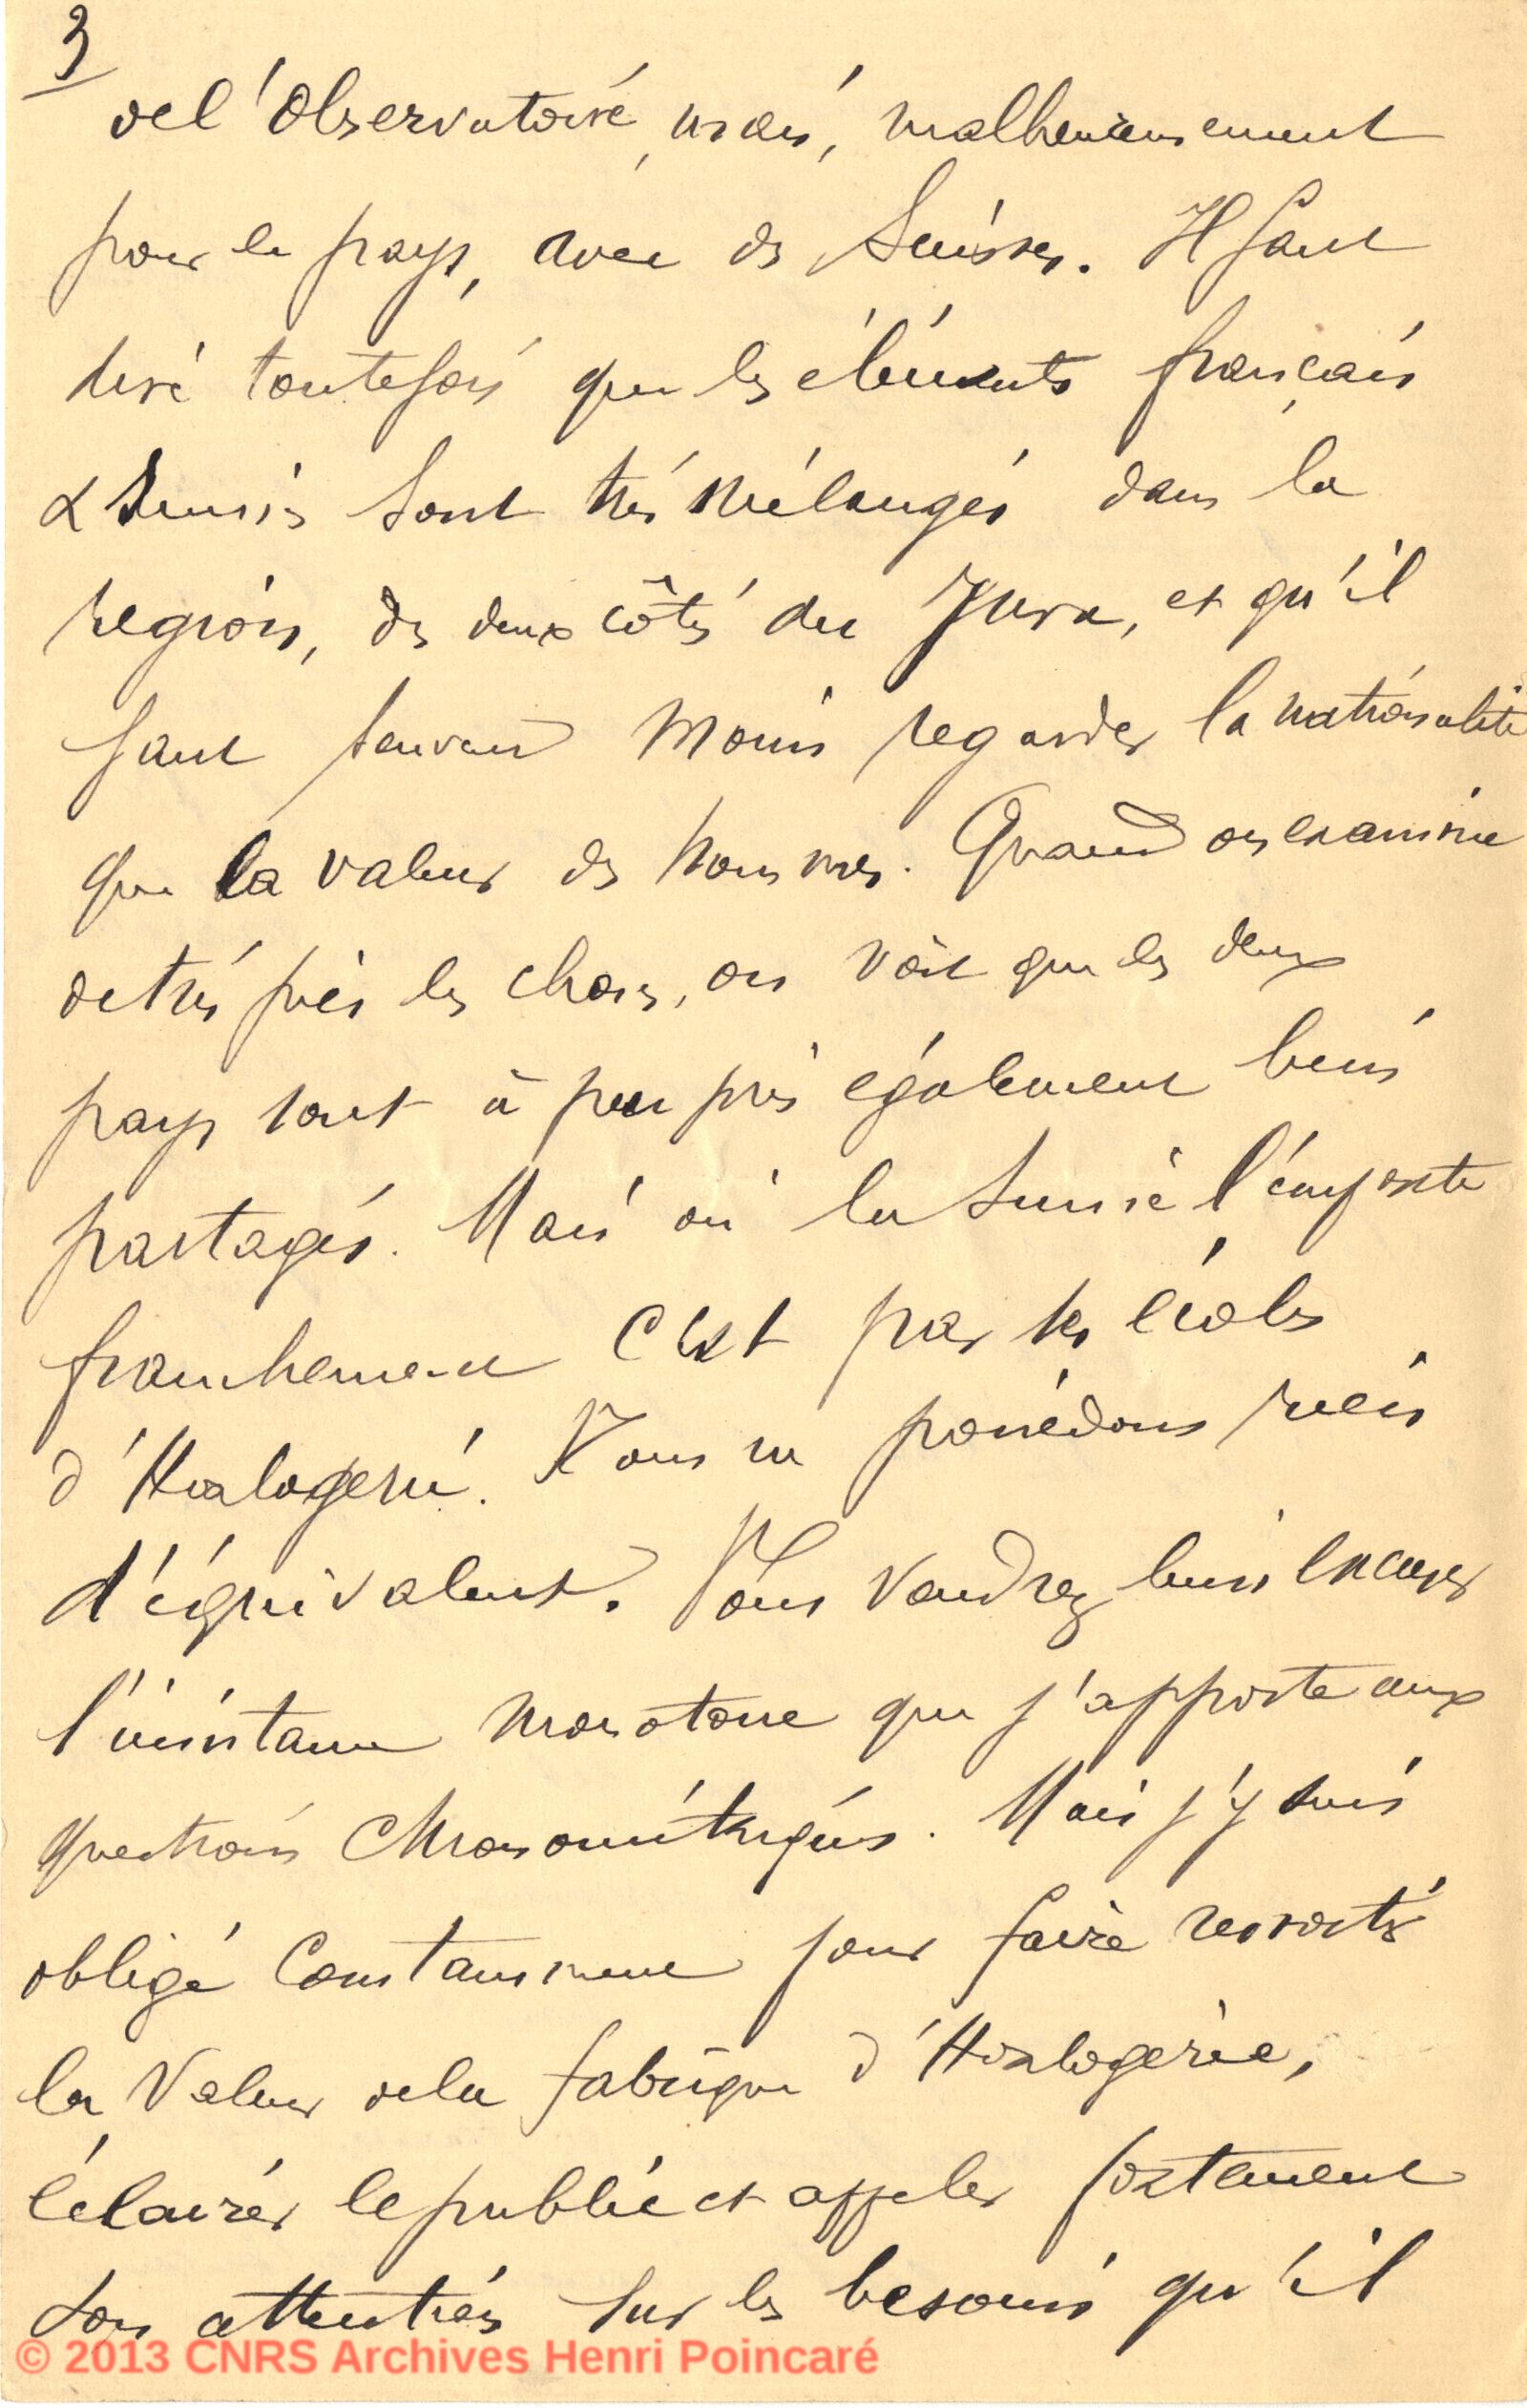 3
de l'Observatoire, mais, malheureusement
pour le pays, avec des Suisses. Il faut
dire toutefois que les éléments français
& Suisses sont très mélangés dans la
region, des deux côtés du Jura, et qu'il
faut souvent moins regarder la nationalité
que la valeur des hommes. Quand on examine
de très près les choses, on voit que les deux
pays sont à peu près également bien
partagés. Mais où la Suisse l'emporte
franchement c'est par ses écoles
d'Horlogerie. Nous ne possédons rien
d'équivalent. Vous voudrez bien excuser
l'insistance monotone que j'apporte aux
questions chronométriques. Mais j'y suis
obligé constamment pour faire ressortir
la valeur de la fabrique d'Horlogerie,
éclairer le public et appeler fortement
son attention sur les besoins qu'il
© 2013 CNRS Archives Henri Poincaré